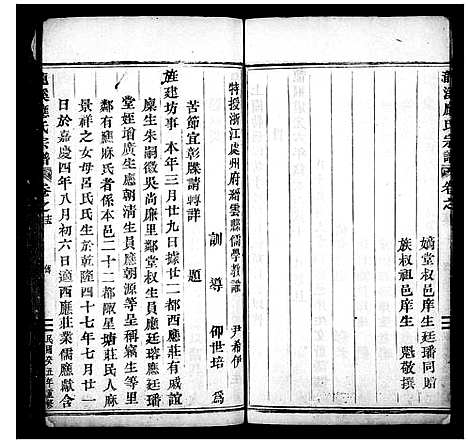 龍溪應氏宗譜 卷之
嫡堂叔邑庠生 廷璠同贈
族叔祖邑庠生 魁敬撰
特授浙江處州府縉雲縣儒學教諭 尹希伊
訓導 仰世培 為
苦節宜彰牒請轉詳 題
旌建坊事本年三月廿九日據廿二都西應莊有戚誼
廩生朱嗣徽吳尚廉里鄰堂叔生員應廷瑢應廷璠
堂姪增廣生應朝清生員應朝源等呈稱竊生等里
鄰有應麻氏者係本邑二十二都見星塘莊民人麻
景祥之女母呂氏氏生於乾隆四十七年七月廿一
日於嘉慶四年八月初六日適西應莊業儒應獻含
龍溪應氏宗譜 卷之
民國癸丑年重修